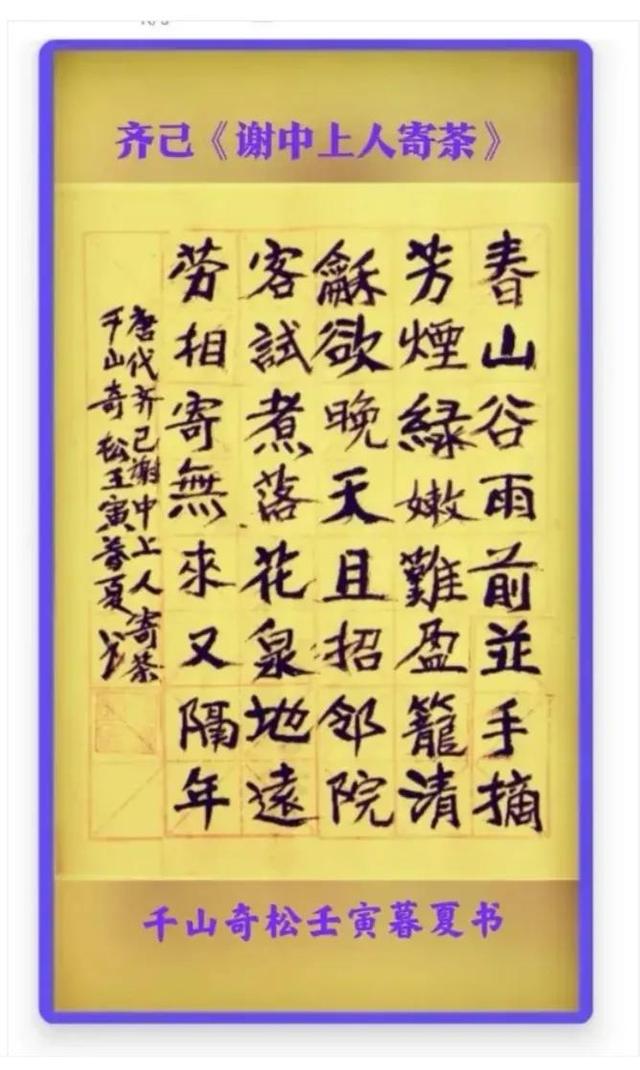 齐己《谢中上人寄茶》
春山谷雨前並手摘
芳煙綠嫩難盈籠清
龢欲晚天且招邻院
客試煮落花泉地遠
劳相寄無來又隔年
唐代齐己谢中上人寄茶
千山奇松壬寅暮夏书
千山奇松壬寅暮夏书